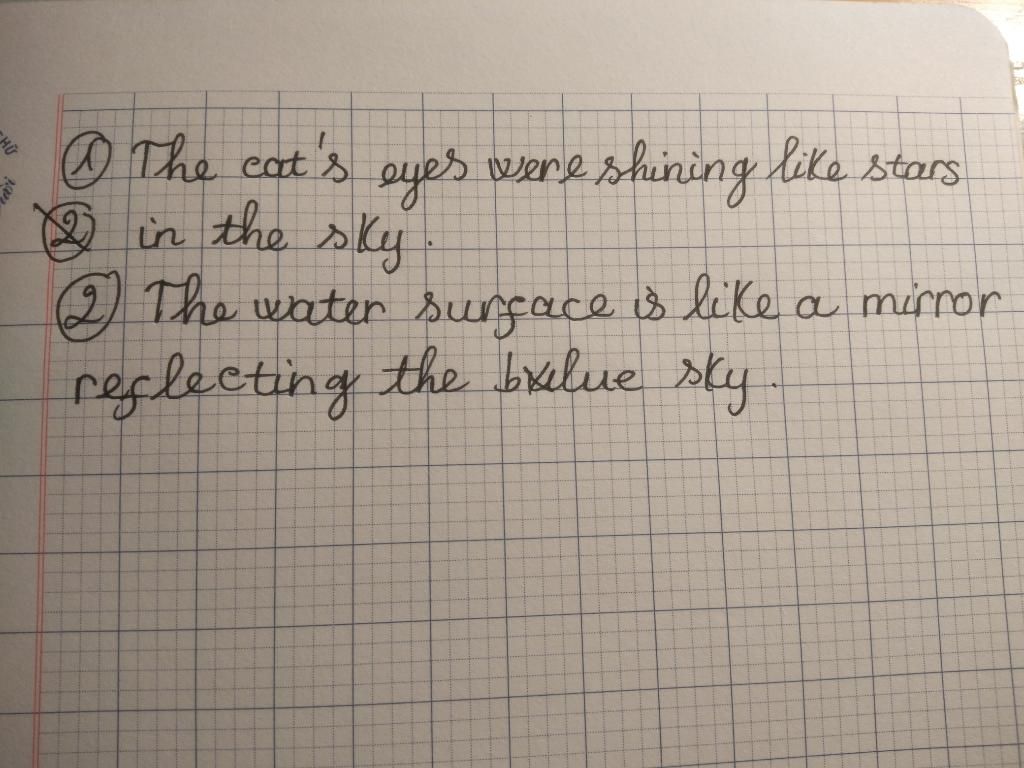 ① The cat's eyes were shining like stars
② in the sky.
② The water surface is like a mirror
reflecting the blue sky.
THỨ